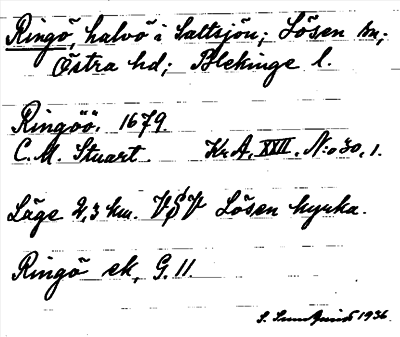 Ringö, halvö i Saltsjön; Lösen sn;
Östra hd; Blekinge l.
Ringöö. 1679.
C. M. Stuart. Kr. A. XXII. N:o 30, 1.
Läge 2,3 km. VSV Lösen kyrka.
Ringö ek, G. 11.
S. 1936